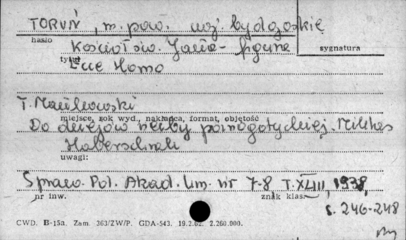 TORUŃ, m. pow. woj. bydgoskie
hasło
sygnatura
Kościół św. Jana - figura
tytuł
Ecce Homo
T. Mańkowski
miejsce, rok wyd., nakładca, format, objętość
Do dziejów rzeźby późnogotyckiej. Mikłas
Haberschrak
uwagi:
Spraw. Pol. Akad. Um. nr 7-8, T. XLIII, 1938,
nr inw.
znak klas.
s. 246-248
CWD. B-15a. Zam. 363/ZW/P. GDA-543. 19.2.62. 2.260.000.